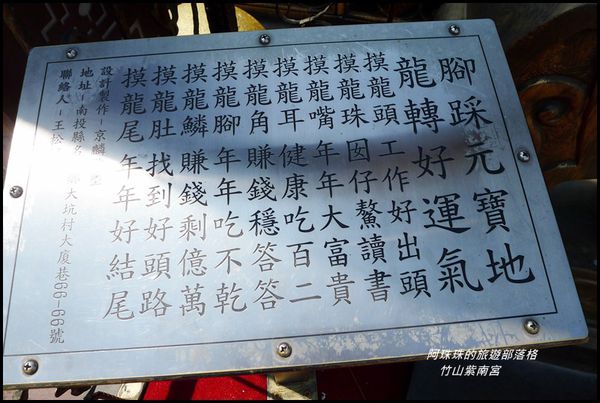 腳踩元寶地
龍轉好運氣
摸龍頭工作好出頭
摸龍珠囡仔鰲讀書
摸龍嘴年年大富貴
摸龍耳健康吃百二
摸龍角賺錢穩答答
摸龍腳年年吃不乾
摸龍鱗賺錢剩億萬
摸龍肚找到好頭路
摸龍尾年年好結尾
設計製作-京麟
地址-南投縣名
大坑村大廈巷66-66號
聯絡人-王松
阿珠珠的旅遊部落格
竹山紫南宮